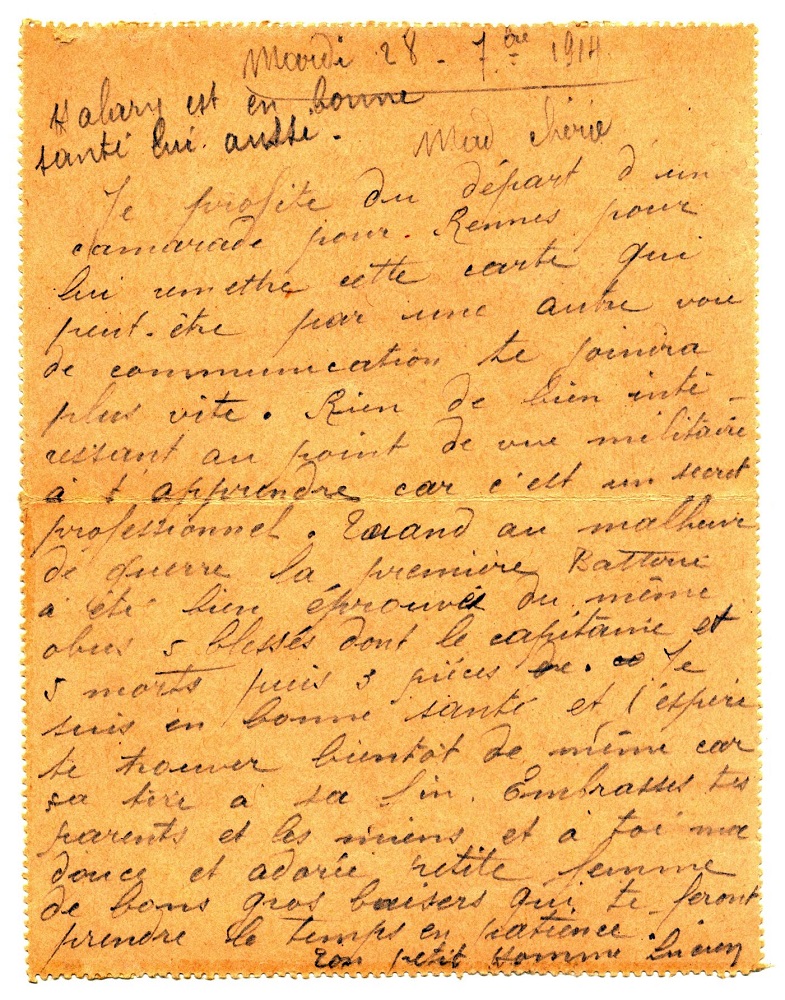 Mardi 28 - 7bre 1914
Halary est en bonne
santé lui aussi.
Mad chérie
Je profite du départ d'un
camarade pour Rennes pour
lui remettre cette carte qui
peut-être par une autre voie
de communication te joindra
plus vite. Rien de bien inté-
ressant au point de vue militaire
à t'apprendre car c'est un secret
professionnel. Quand au malheur
de guerre la première Batterie
a été bien éprouvée du même
obus 5 blessés dont le capitaine et
5 morts puis 3 pièces de. Je
suis en bonne santé et j'espère
te trouver bientôt de même car
sa tire à sa fin. Embrasses tes
parents et les miens et à toi ma
douce et adorée petite femme
de bons gros baisers qui te feront
prendre le temps en patience.
Ton petit Homme Lucien